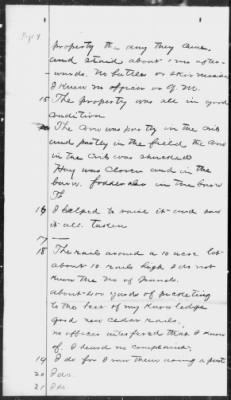 property the day they came
and staid about 1 mo after-
wards.
I knew no officer
15 The property was all in good
condition
The corn was partly in the crib
and partly in the field the corn
in the crib was shucked
Hay was clover and in the
barn. fodder also in the barn
16 I helped to raise it and saw
it all taken
17 —
18 The rails around a 10 acre lot
about 10 rails high I do not
know the No of panels.
about 400 yards of picketing
to the best of my knowledge
good new cedar rails,
no officer interfered that I know
of. I heard no complaint,
19 I do for I saw them using a part
20 I do.
21 I do.